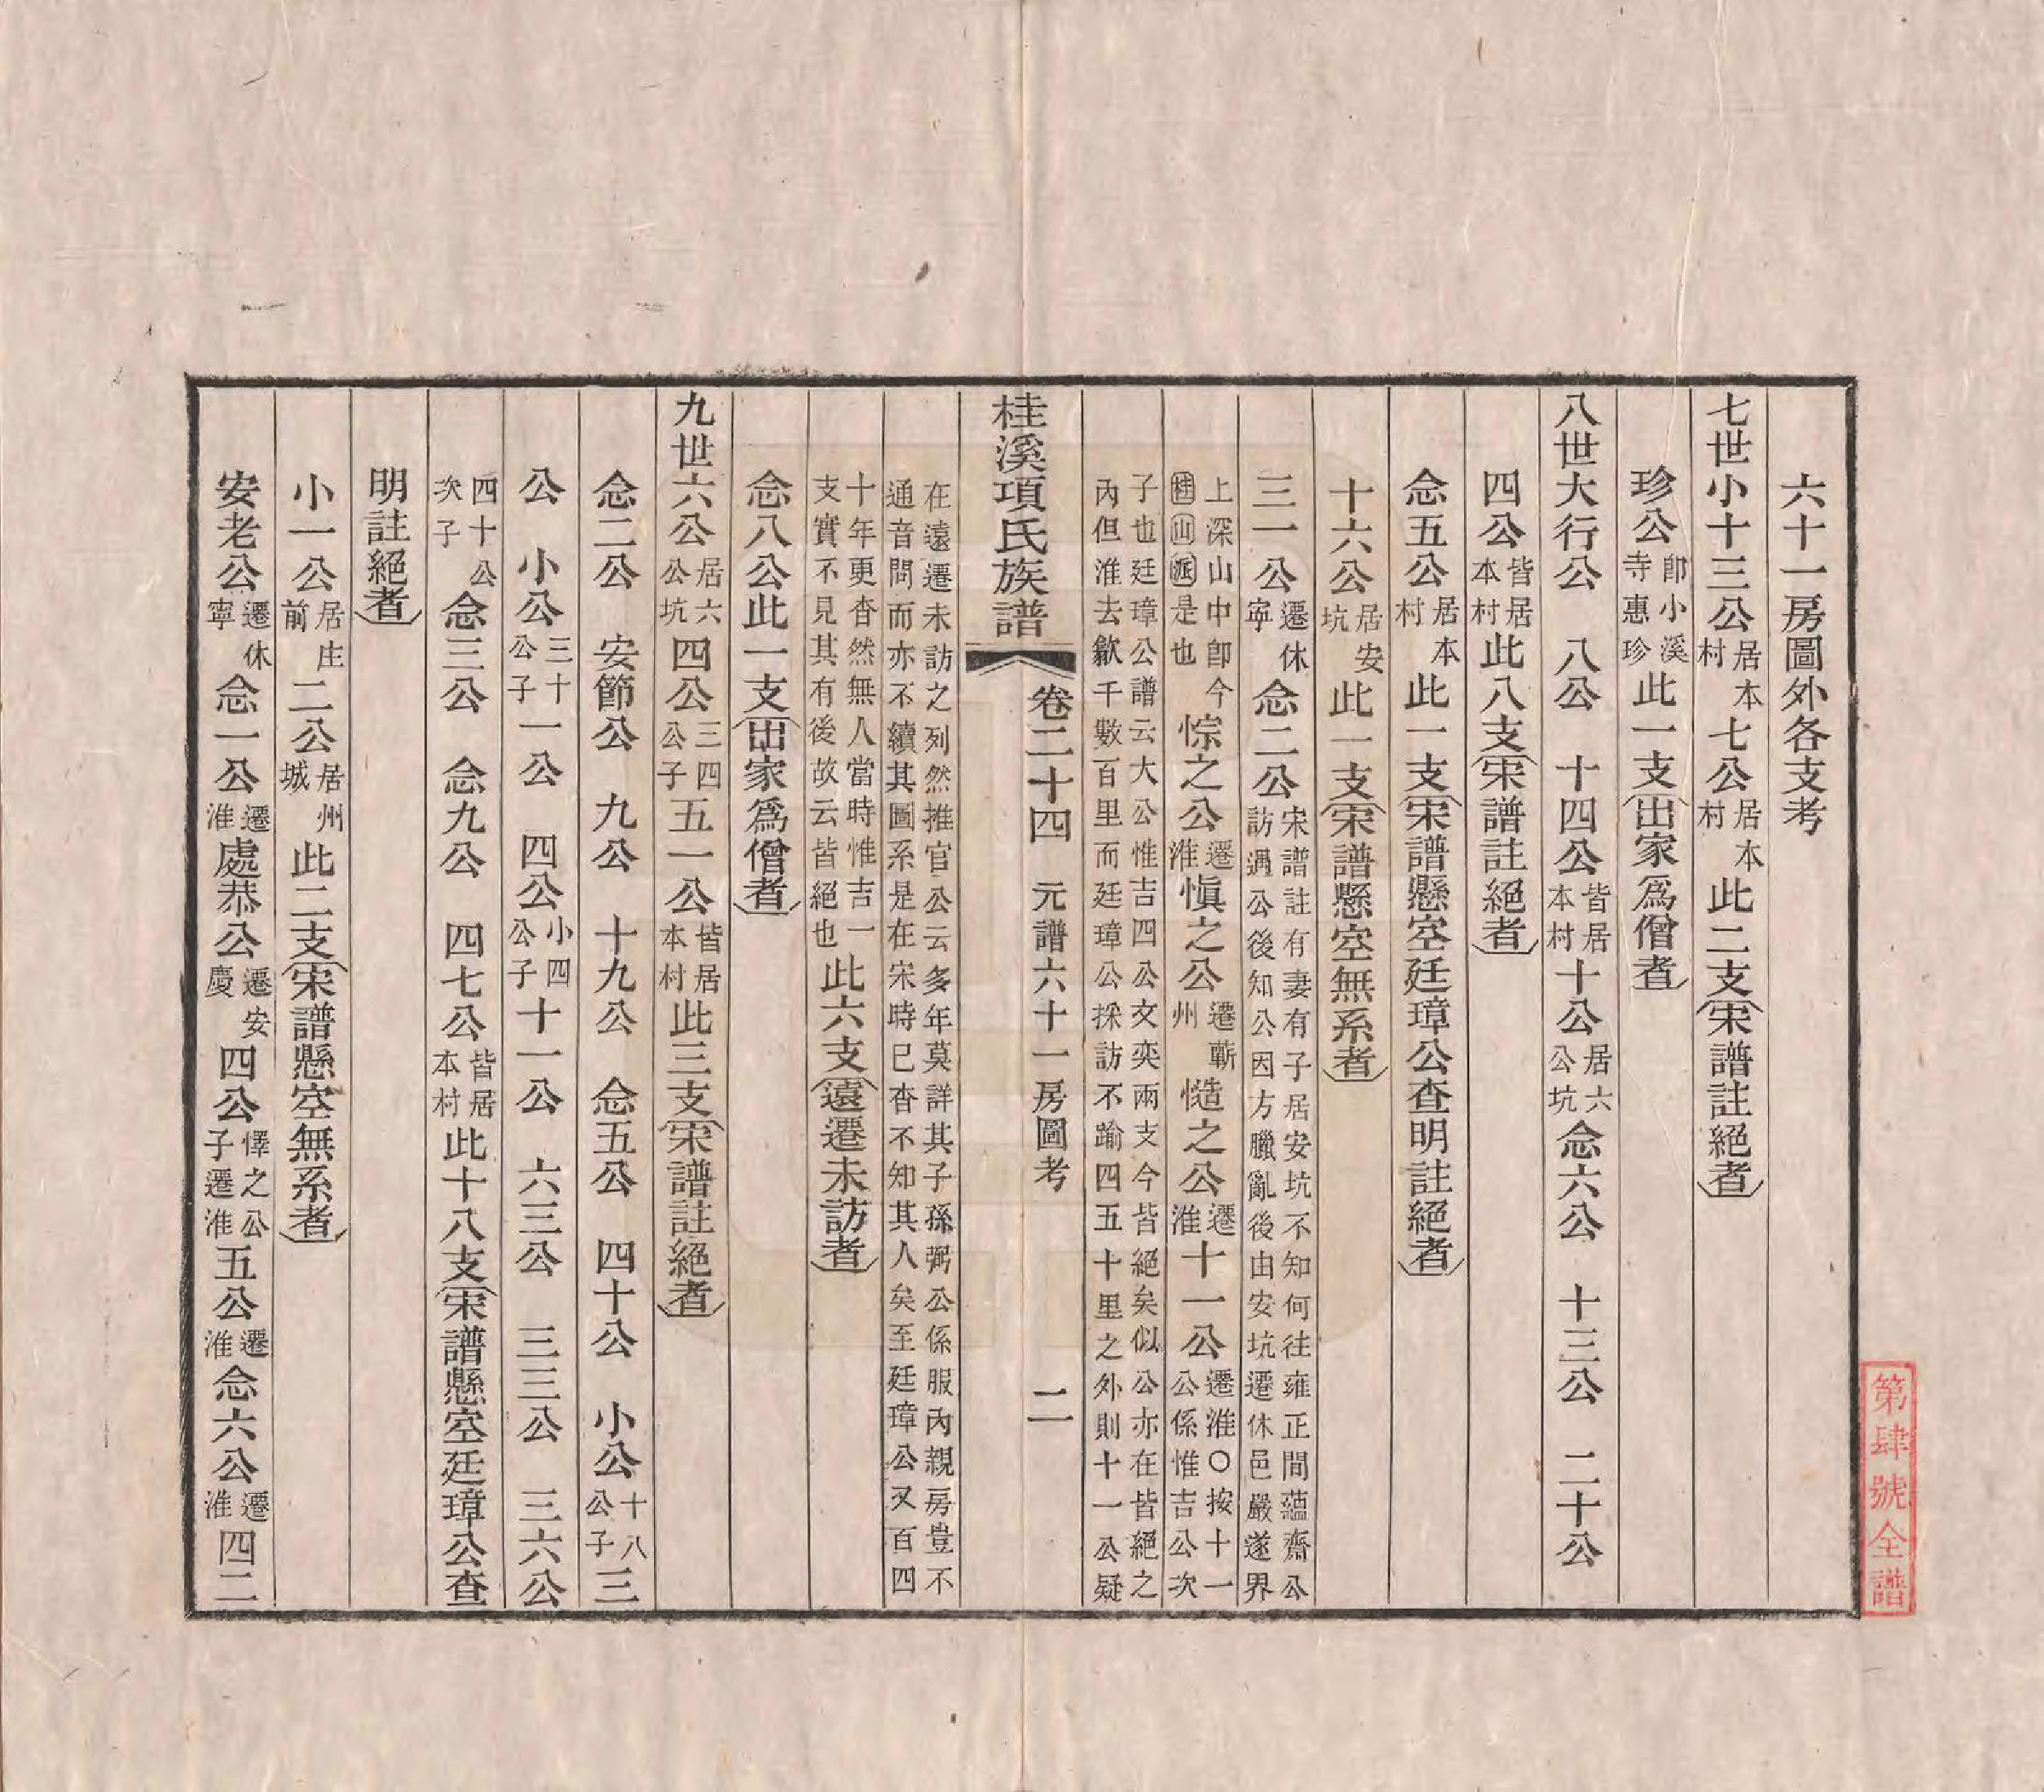 六十一房圖外各支考
七世小十三公居本村七公居本村此二支宋譜註絕者
珍公卽小溪寺惠珍此一支出家爲僧者
八世大行公 八公 十四公皆居本村十公居六公坑念六公 十三公 二十公
四公皆居本村此八支宋譜註絕者
念五公居本村此一支宋譜懸空廷璋公查明註絕者
十六公居安坑此一支宋譜懸空無系者
三一公遷休寧念二公宋譜註有妻有子居安坑不知何往雍正間蘊齋公訪遇公後知公因方臘亂後由安坑遷休邑嚴遂界
上深山中卽今桂山派是也悰之公遷淮愼之公遷蘄州慥之公遷淮十一公遷淮○按十一公係惟吉公次
子也廷璋公譜云大公惟吉四公文奕兩支今皆絕矣似公亦在皆絕之內但淮去歙千數百里而廷璋公採訪不踰四五十里之外則十一公疑
桂溪項氏族譜 卷二十四 元譜六十一房圖考 二
在遠遷未訪之列然推官公云多年莫詳其子孫弼公係服內親房豈不通音問而亦不續其圖系是在宋時已杳不知其人矣至廷璋公又百四
十年更杳然無人當時惟吉一支實不見其有後故云皆絕也此六支遠遷未訪者
念八公此一支出家爲僧者
九世六公居六公坑四公三四公子五一公皆居本村此三支宋譜註絕者
念二公 安節公 九公 十九公 念五公 四十公 小公十八公子三
公 小公三十公子一公 四公小四公子十一公 六三公 三三公 三六公
四十公次子念三公 念九公 四七公皆居本村此十八支宋譜懸空廷璋公查
明註絕者
小一公居庄前二公居州城此二支宋譜懸空無系者
安老公遷休寧念一公遷淮處恭公遷安慶四公懌之公子遷淮五公遷淮念六公遷淮四二
第肆號全譜